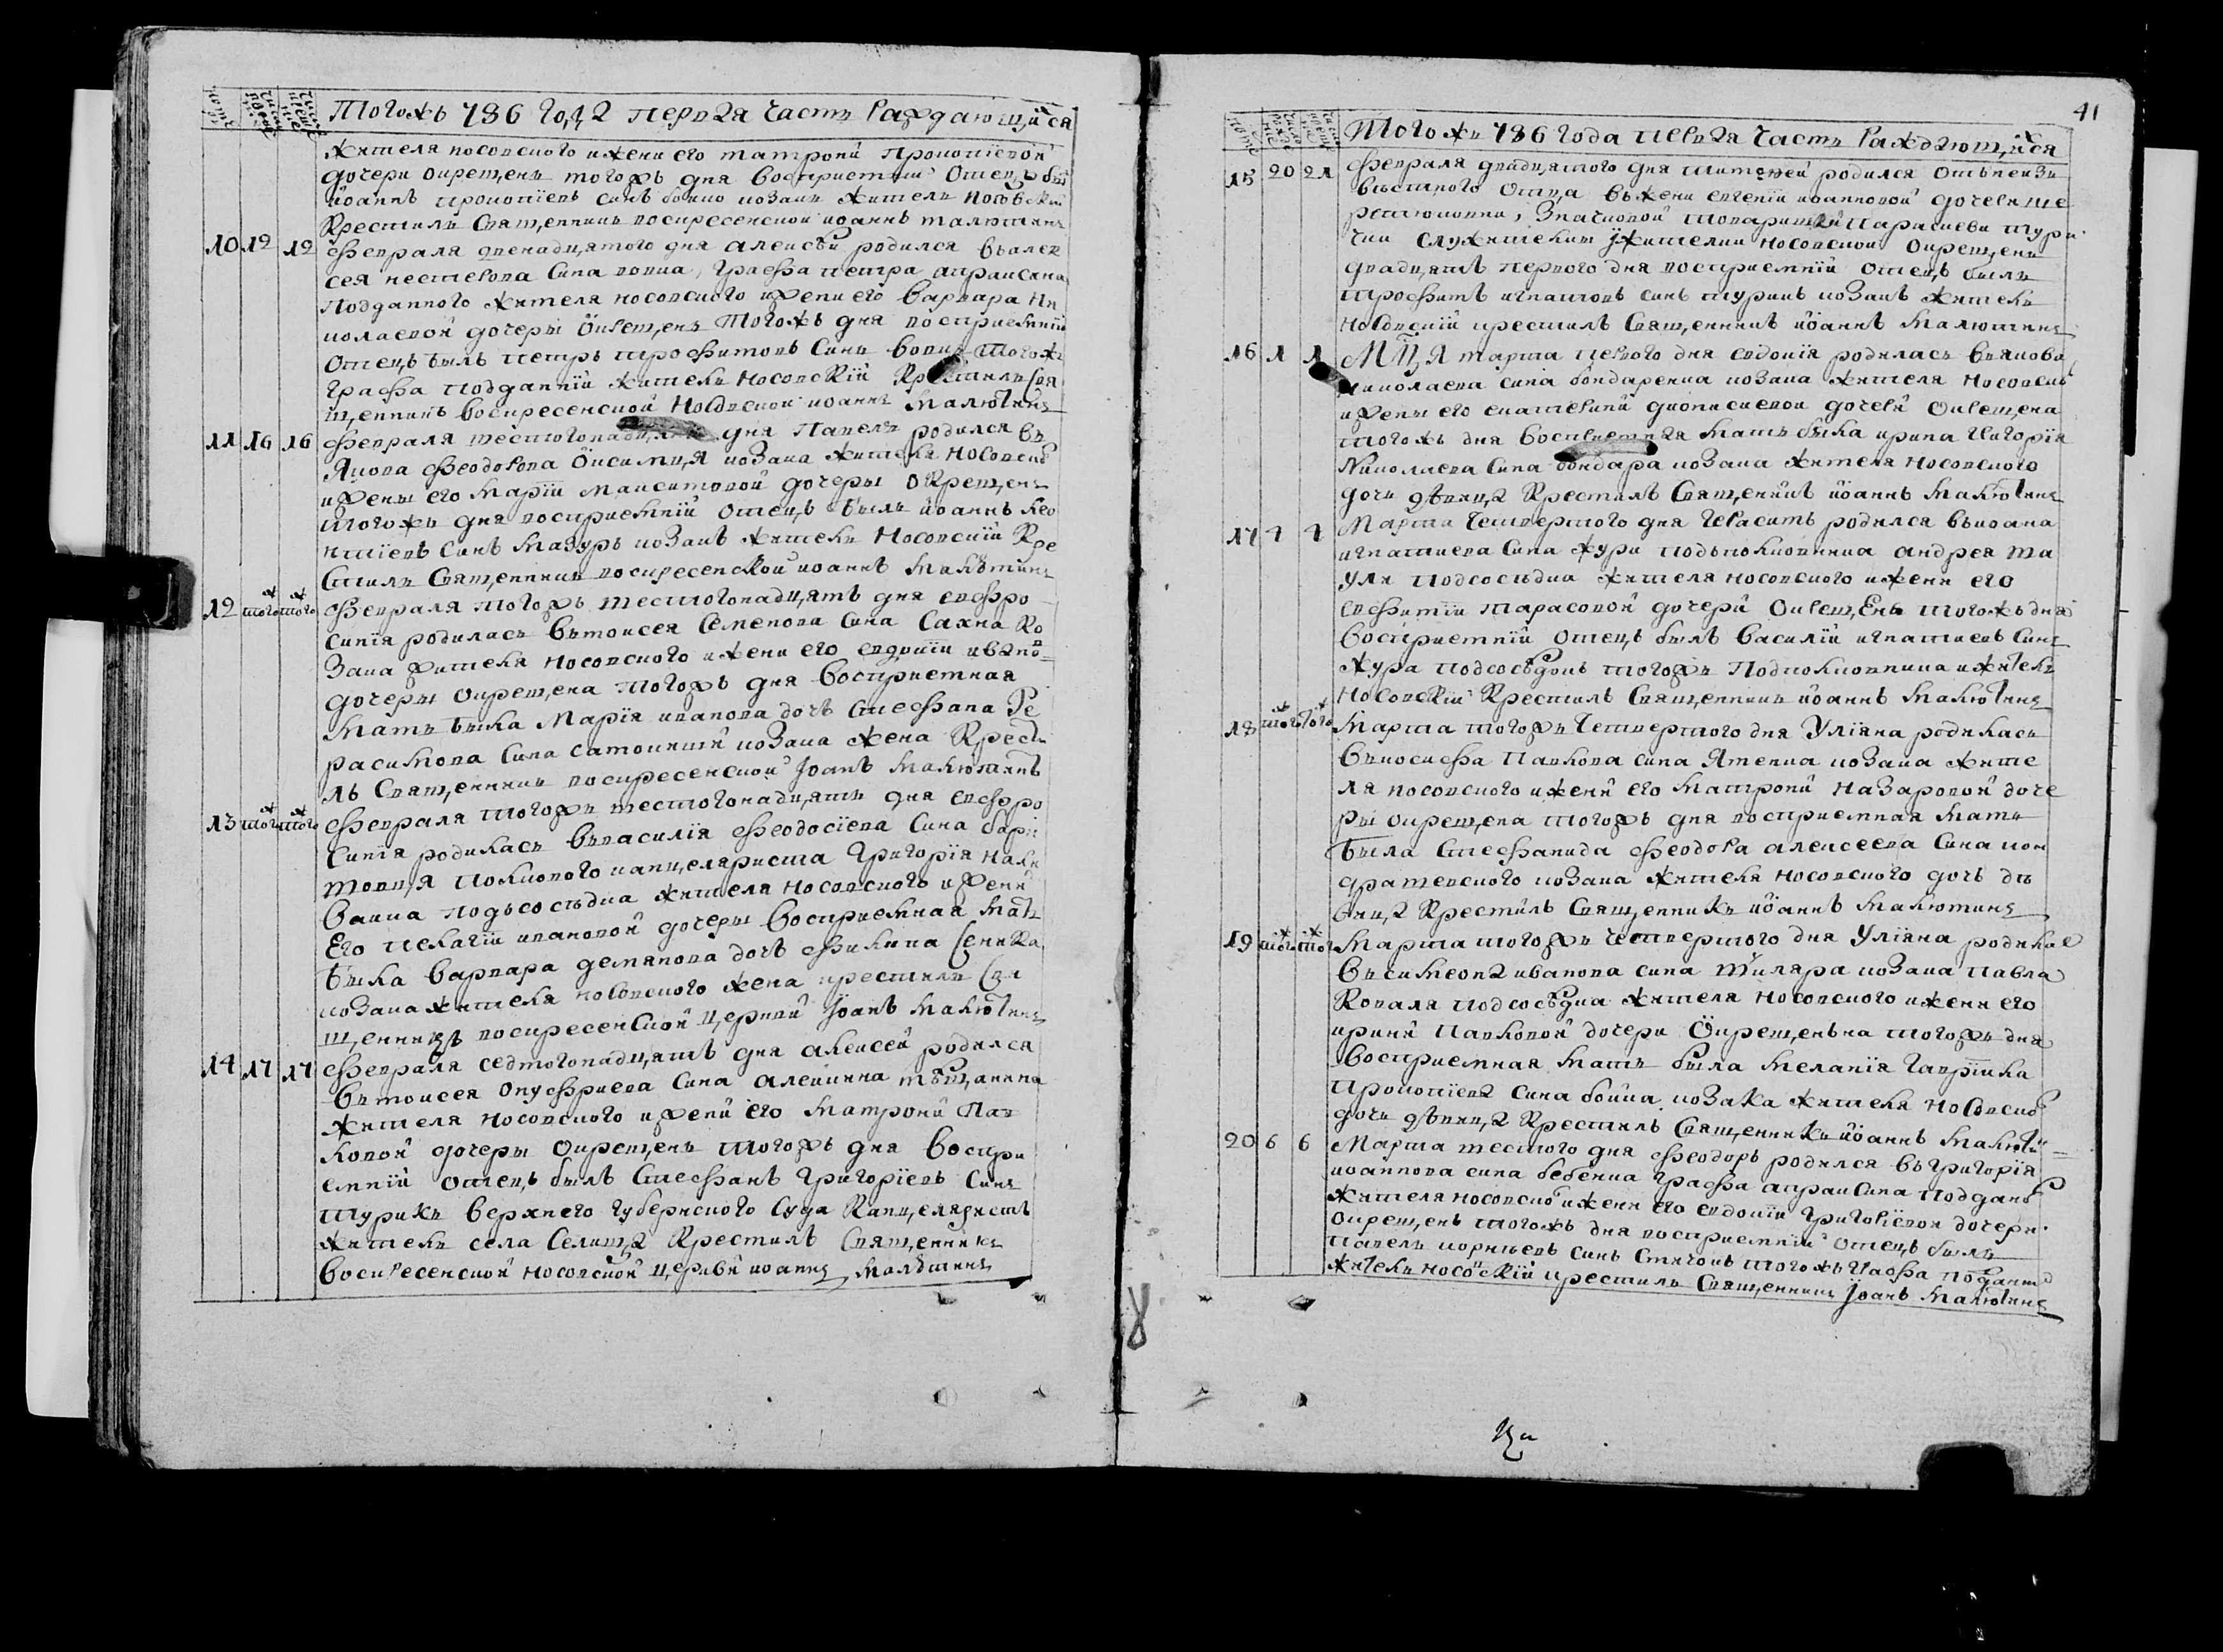 Тогожъ 786 года первая часть раждающийся
жителя носовского и жени его матрони Прокопіевой
дочери окрещенъ тогожъ дня восприемній отецъ былъ
иоаннъ прокопіевъ синъ бойко козакъ житель носовский
Крестилъ Священникъ воскресенской иоаннъ малютинъ
10 12 12 февраля двенадцятого дня алексѣй родился въ алек
сея нестерова сина вовка, графа петра апраксина
подданного жителя носовского и жени его варвара ни
колаевой дочеры окрещенъ тогожъ дня восприемній
отецъ былъ петръ трофимовъ синъ вовкъ тогожъ
графа подданній житель носовскій Крестилъ Свя
щенникъ воскресенской Носовской иоаннъ малютинъ
11 16 16 февраля шестогонадцять дня Павелъ родился въ
Якова феодорова Онисимця козака жителя носовско
и жены его маріи максимовой дочеры окрещенъ
тогожъ дня восприемній отецъ былъ иоаннъ лео
нтіевъ синъ мазуръ козакъ житель Носовскій Кре
стилъ Священникъ воскресенской иоаннъ малютинъ
12 тогож тогож февраля тогожъ шестогонадцять дня евфро
синія родилась въ моисея Семенова сина Сахна ко
зака жителя носовского и жени его евдокіи иванов
дочеры окрещена тогожъ дня восприемная
мать была Марія иванова дочъ Стефана Ге
расимова сина самойкий козака жена Крести
лъ Священникъ воскресенской Іоанъ малютинъ
13 тогож тогож февраля тогожъ шестогонадцять дня евфро
синія родилась въ василія феодосіева сина бари
товця полкового канцеляриста Григорія нали
вайка подсосѣдка жителя носовского и жени
Его пелагіи ивановой дочеры восприемная мать
была варвара демянова дочъ филипа Сеника
козака жителя носовского жена крестилъ Свя
щенникъ воскресенской церкви Іоанъ малютинъ
14 17 17 февраля седмогонадцять дня алексей родился
въ моисея онуфриева сина алешина мѣщанина
жителя носовского и жени его матрони Пав
ловой дочеры окрещенъ тогожъ дня воспри
емній отецъ былъ Стефанъ Григоріевъ синъ
шурикъ верхнего губернского суда Канцеляристъ
житель села Селища Крестилъ Священникъ
воскресенской носовской церкви иоаннъ малютинъ
41
Тогожъ 786 года первая часть раждающийся
15 20 21 февраля двадцятого дня тимофей родился отъ неизъ
вѣстного отца въ жени евгеніи иоанновой дочери ше
реметовни, значковой товаришки Параскеви шури
чки служителки жителки носовской окрещенъ
двадцять первого дня восприемній отецъ былъ
трофимъ игнатовъ синъ шурикъ козакъ житель
носовскій крестилъ Священникъ иоаннъ малютинъ
16 1 1 МЦЯ марта первого дня евдокія родилась въ якова
николаева сина бондаренка козака жителя носовско
и жены его екатерини дионисиевой дочери окрещена
тогожъ дня восприемная мать была ирина григорія
Николаева сина бондара козака жителя носовского
дочъ дѣвица Крестилъ Священникъ иоаннъ малютинъ
17 4 4 Марта четвертого дня герасимъ родился въ иоана
игнатиева сина жури подполковника андрея ма
уля подсосѣдка жителя носовского и жени его
евфиміи тарасовой дочери окрещенъ тогожъ дня
восприемній отецъ былъ василій игнатиевъ синъ
жура подсосѣдокъ тогожъ Подполковника и житель
носовскій Крестилъ Священникъ иоаннъ малютинъ
18 тогож тогож марта тогожъ четвертого дня Уліяна родилась
въ иосифа Павлова сина Ятченка козака жите
ля носовского и жени его матрони назаровой доче
ры окрещена тогожъ дня восприемная мать
была Стефанида феодора алексеева сина кон
дратевского козака жителя носовского дочъ дѣ
вица Крестилъ Священникъ иоаннъ малютинъ
19 тогож тогож марта тогожъ четвертого дня Уліяна родилас
въ симеона иванова сина тиляра козака павла
Коваля подсосѣдка жителя носовского и жени его
ирини Павловой дочери окрещенъна тогожъ дня
восприемная мать была меланія гавріила
прокопіева сина бойка козака жителя носовско
дочъ дѣвица Крестилъ Священникъ иоаннъ малюти
20 6 6 Марта шестого дня феодоръ родился въ григорія
иоаннова сина бебенка графа апраксина поддано
жителя носовско и жени его евдокіи григоріевой дочери
окрещенъ тогожъ дня восприемній отецъ былъ
павелъ корнѣевъ синъ Стягонъ тогожъ графа подданно
житель носовскій крестилъ Священникъ Іоанъ малютинъ